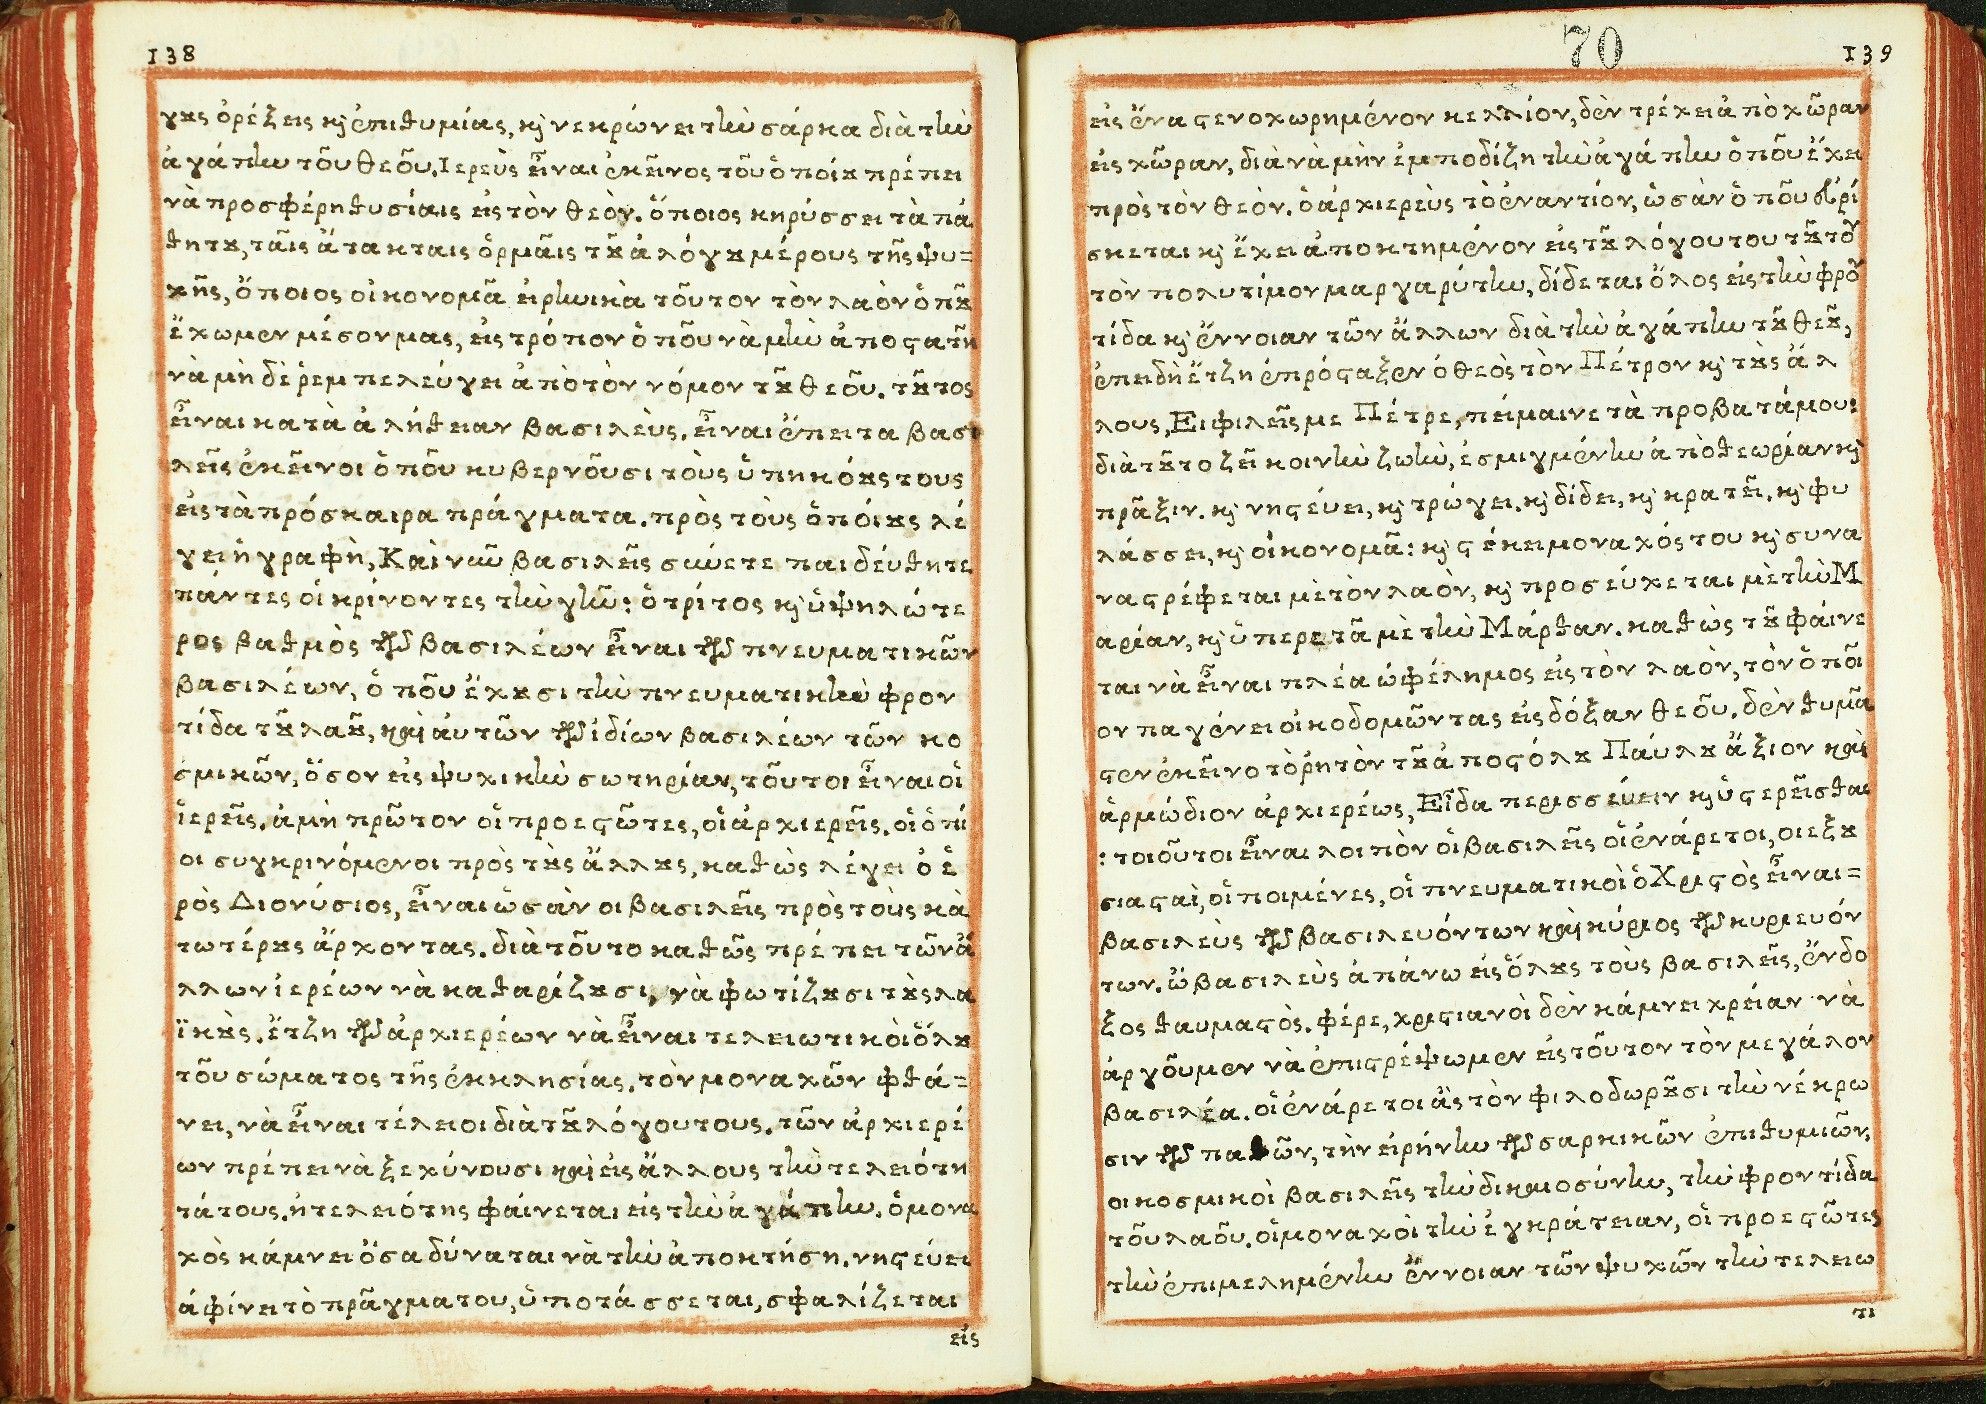 138
γȣς ὀρέξεις κ ἐπιθυμίας, κ νεκρώνει τὴν σάρκα διὰ τὴν
ἀγάπην τοῦ θεοῦ. Ιερεὺς εἶναι ἐκεῖνος τοῦ ὁποίȣ πρέπει
νὰ προσφέρη θυσίαις εἰς τὸν θεὸν. ὅποιος κηρύσσει τὰ πά
θητȣ, ταῖς ἄτακταις ὁρμαῖς τȣ ἀλόγȣ μέρους τῆς ψυ=
χῆς, ὅποιος οἰκονομᾶ εἰρηνικὰ τοῦτον τὸν λαὸν ὁπȣ
ἔχωμεν μέσον μας, εἰς τρόπον ὁποῦ νὰ μὴν ἀποστατῆ
νὰ μὴ δὲ ῥεμπελεύγει ἀπὸ τὸν νόμον τȣ θεοῦ. τȣτος
εἶναι κατὰ ἀλήθειαν βασιλεὺς. εἶναι ἔπειτα βασι
λεῖς ἐκεῖνοι ὁποῦ κυβερνοῦσι τοὺς ὑπηκόȣς τους
εἰς τὰ πρόσκαιρα πράγματα. πρὸς τοὺς ὁποίȣς λέ
γει ἡ γραφὴ, Καὶ νῦν βασιλεῖς σύνετε παιδεύθητε
πάντες οἱ κρίνοντες τὴν γῆν: ὁ τρίτος κ ὑψηλώτε
ρος βαθμὸς τῶν βασιλέων εἶναι τῶν πνευματικῶν
βασιλέων, ὁποῦ ἔχȣσι τὴν πνευματικὴν φρον
τίδα τȣ λαȣ, καὶ ἀυτῶν τῶν ἰδίων βασιλέων τῶν κο
σμικῶν, ὅσον εἰς ψυχικὴν σωτηρίαν, τοῦτοι εἶναι οἱ
ἱερεῖς. ἀμὴ πρῶτον οἱ προεστῶτες, οἱ ἀρχιερεῖς. οἱ ὁπί
οι συγκρινόμενοι πρὸς τȣς ἄλλȣς, καθὼς λέγει ὁ ἱε
ρὸς Διονύσιος, εἶναι ὡσὰν οι βασιλεῖς πρὸς τοὺς κα
τωτέρȣς ἄρχοντας. διὰ τοῦτο καθὼς πρέπει τῶν ἄ
λλων ἱερέων νὰ καθαρίζȣσι, νὰ φωτίζȣσι τȣς λα
ϊκȣς. ἔτζη τῶν ἀρχιερέων νὰ εἶναι τελειωτικοὶ ὅλȣ
τοῦ σώματος τῆς ἐκκλησίας. τὸν μοναχῶν φθά=
νει, νὰ εἶναι τέλειοι διὰ τȣ λόγου τους. τῶν ἀρχιερέ
ων πρέπει νὰ ξεχύνουσι καὶ εἰς ἄλλους τὴν τελειότη
τά τους. ἡ τελειότης φάινεται εἰς τὴν ἀγάπην. ὁ μονα
χὸς κάμνει ὅσα δύναται νὰ τὴν ἀποκτήση. νηστεύει
ἀφίνει τὸ πρᾶγμα του, ὑποτάσσεται, σφαλίζεται
εἰς
70
139
εἰς ἕνα στενοχωρημένον κελλίον, δὲν τρέχει ἀπὸ χῶραν
εἰς χῶραν, διὰ νὰ μὴν ἐμποδίζη τὴν ἀγάπην ὁποῦ ἔχει
πρὸς τὸν θεὸν. ὁ ἀρχιερεὺς τὸ ἐναντίον, ὡσὰν ὁποῦ εὑρί
σκεται κ ἔχει ἀποκτημένον εἰς τȣ λόγου του τȣτον
τὸν πολυτίμον μαργαρύτην, δίδεται ὅλος εἰς τὴν φρο
τίδα κ ἔννοιαν τῶν ἄλλων διὰ τὴν ἀγάπην τȣ θεȣ,
ἐπειδὴ ἔτζη ἐπρόσταξεν ὁ θεὸς τὸν Πέτρον κ τȣς ἄλ
λους, Ει φιλεῖς με Πέτρε, πείμαινε τὰ προβατάμου:
διὰ τȣτο ζεῖ κοινὴν ζωὴν, ἐσμιγμένην ἀπὸ θεωρίαν κ
πρᾶξιν. κ νηστέυει, κ τρώγει. κ δίδει, κ κρατεῖ. κ φυ
λάσσει, κ οἰκονομᾶ: κ στέκει μοναχός του κ συνα
ναστρέφεται μὲ τὸν λαὸν, κ προσεύχεται μὲ τὴν Μ
αρίαν, κ ὑπερετᾶ μὲ τὴν Μάρθαν. καθὼς τȣ φάινε
ται νὰ εἶναι πλέα ὠφέλημος εἰς τὸν λαὸν, τὸν ὁποῖ
ον παγένει οἰκοδομῶντας εἰς δόξαν θεοῦ. δὲν θυμᾶ
στεν ἐκεῖνο τὸ ῥητὸν τȣ ἀποστόλȣ Πάυλȣ ἄξιον καὶ
ἁρμώδιον ἀρχιερέως, Εἶδα περισσέυειν κ ὑστερεῖσθαι
: τοιοῦτοι εἶναι λοιπὸν οἱ βασιλεῖς οἱ ἐνάρετοι, οι εξȣ
σιασταὶ, οἱ ποιμένες, οἱ πνευματικοὶ ὁ Χριστὸς εἶναι=
βασιλεὺς τῶν βασιλευόντων καὶ κύριος τῶν κυριευόν
των. ὦ βασιλεὺς ἀπάνω εἰς ὅλȣς τοὺς βασιλεῖς, ἔνδο
ξος θαυμαστὸς. φέρε, χριστιανοὶ δὲν κάμνει χρείαν νὰ
ἀργοῦμεν νὰ ἐπιστρέψωμεν εἰς τοῦτον τὸν μεγάλον
βασιλέα. οἱ ἐνάρετοι ἂς τὸν φιλοδωρȣσι τὴν νέκρω
σιν τῶν παθῶν, τὴν εἰρήνην τῶν σαρκικῶν ἐπιθυμιῶν,
οι κοσμικοὶ βασιλεῖς τὴν δικαιοσύνην, τὴν φροντίδα
τοῦ λαοῦ. οἱ μοναχοὶ τὴν ἐγκράτειαν, οἱ προεστῶτες
τὴν ἐπιμελημένην ἔννοιαν τῶν ψυχῶν τὴν τελειω
τι